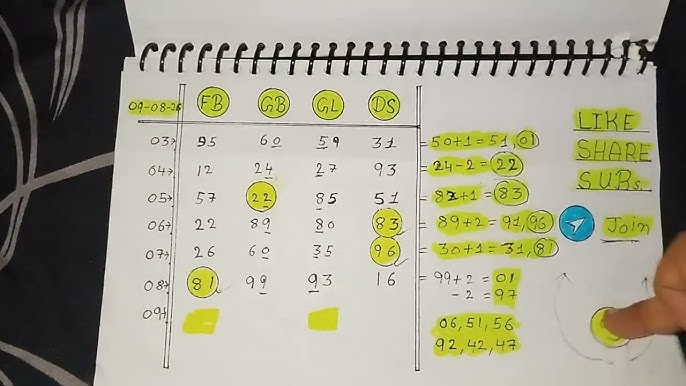 09-08-26 FB GB GL DS
03→ 95 60 59 31 = 50+1 = 51, 01
04→ 12 24 27 93 = 24-2 = 22
05→ 57 22 85 51 = 82+1 = 83
06→ 22 89 80 83 = 89+2 = 91, 96
07→ 26 60 35 96 = 30+1 = 31, 81
08→ 81 99 93 16 = 99+2 = 01
-2 = 97
09→
06, 51, 56
92, 42, 47
LIKE
SHARE
SUBs.
Join